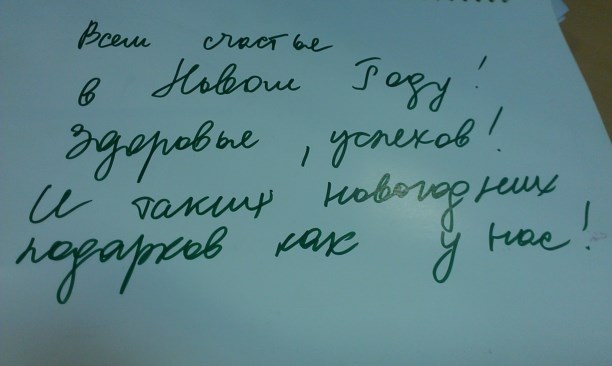 Всем счастье
в Новом Году!
Здоровье, успехов!
И таких новогодних
подарков как у нас!